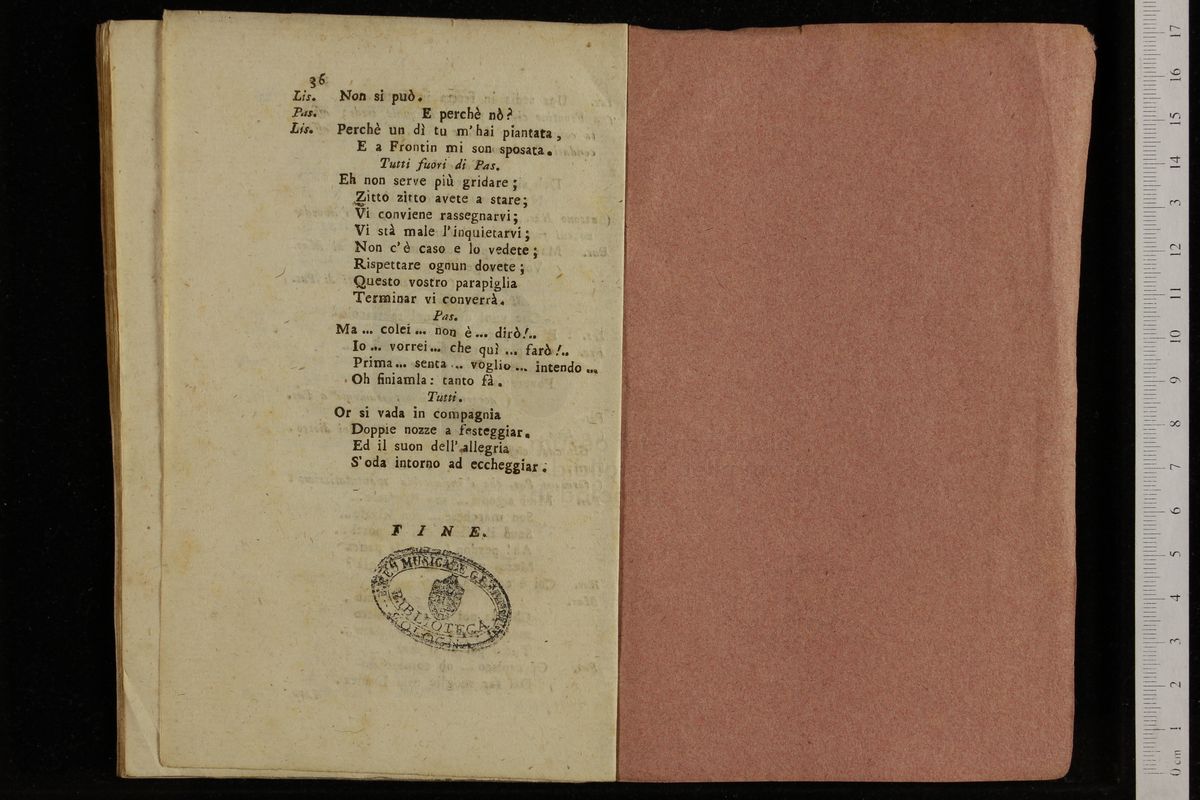 36
Lis. Non si può.
Pas. E perchè nò?
Lis. Perchè un dì tu m'hai piantata,
E a Frontin mi son sposata.
Tutti fuori di Pas.
Eh non serve più gridare;
Zitto zitto avete a stare;
Vi conviene rassegnarvi;
Vi stà male l'inquietarvi;
Non c'è caso e lo vedete;
Rispettare ognun dovete;
Questo vostro parapiglia
Terminar vi converrà.
Pas.
Ma... colei... non è... dirò!..
Io... vorrei... che quì... farò!..
Prima... senta... voglio... intendo...
Oh finiamla: tanto fà.
Tutti.
Or si vada in compagnia
Doppie nozze a festeggiar.
Ed il suon dell'allegria
S'oda intorno ad eccheggiar.
FINE.
MUSICALE
BIBLIOTECA
BOLOGNA
17
16
15
14
13
12
11
10
9
8
7
6
5
4
3
2
1
0 cm